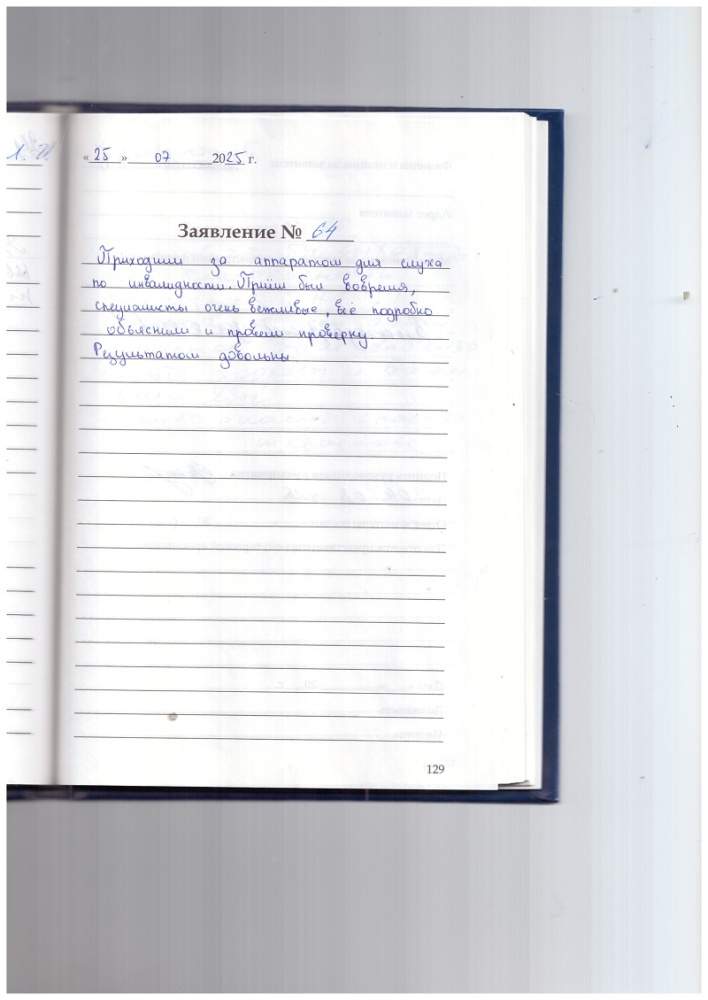 «25» 07 2025 г.
Заявление № 64
Приходили за аппаратом для слуха
по инвалидности. Приём был вовремя,
специалисты очень вежливые, всё подробно
объяснили и провели проверку
Результатом довольны.
129